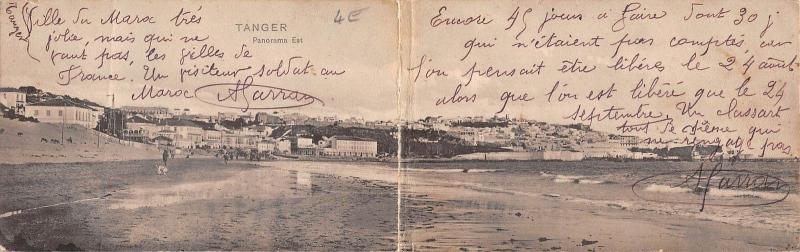 Tanger
Ville du Maroc très
jolie, mais qui ne
vaut pas, les villes de
France. Un visiteur soldat au
Maroc AGarran
TANGER
Panorama Est
4E
Encore 45 jours à faire dont 30 j
qui n'étaient pas comptés, car
l'on pensait être libéré le 24 août
alors que l'on est libéré que le 24
septembre. Un classard
tout de même qui
ne rengage pas.
AGarran